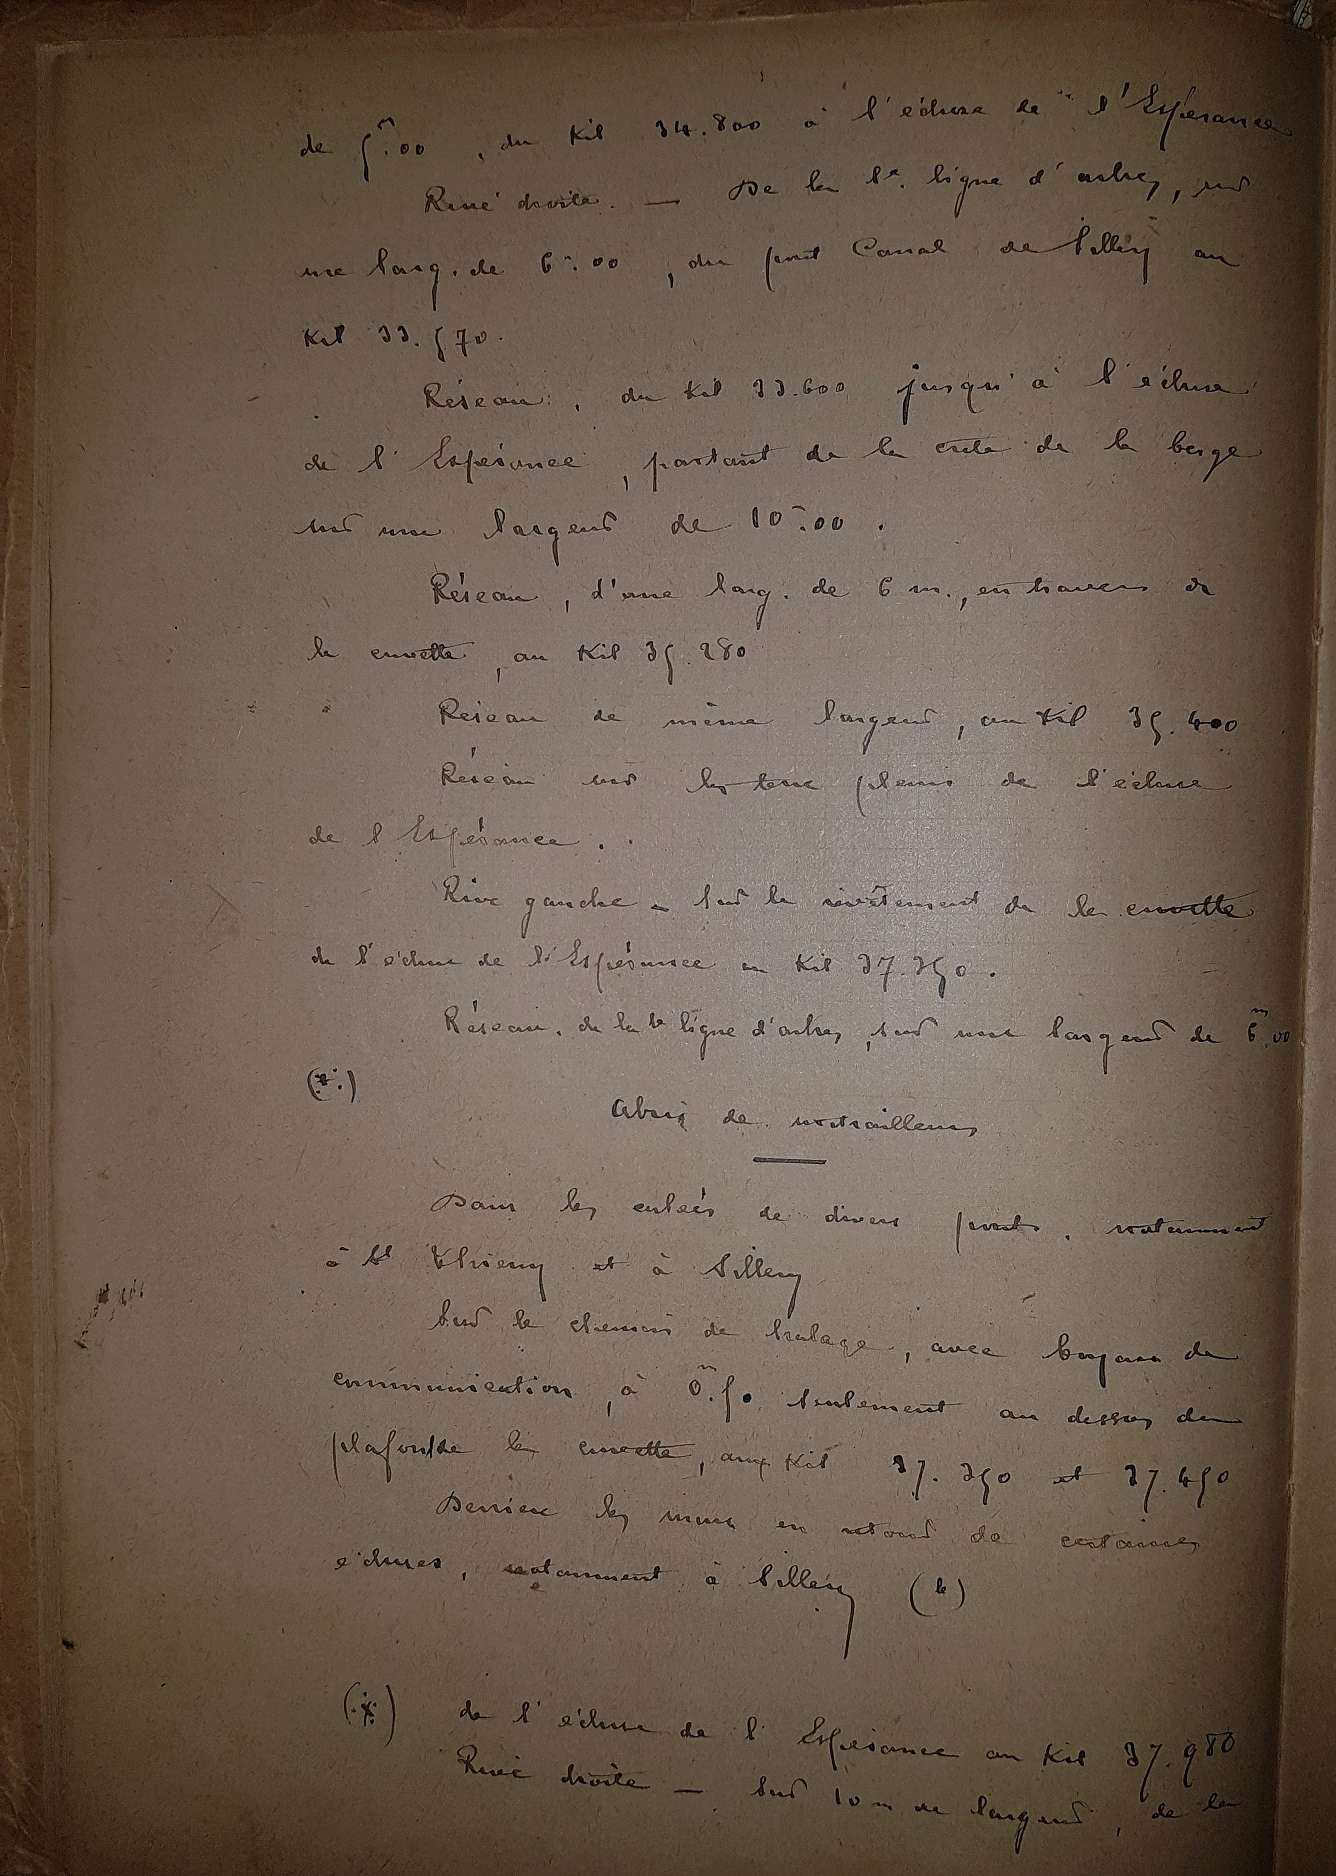 de 5m.00, du Kil 34.800 à l'écluse de l'Espérance
Rive droite. — De la 1e. ligne d'arbres, sur
une larg. de 6m.00, du pont Canal de Sillery au
Kil 33.570.
Réseau, du Kil 33.600 jusqu'à l'écluse
de l'Espérance, partant de la crête de la berge
sur une largeur de 10m.00.
Réseau, d'une larg. de 6 m., en travers de
la cuvette, au Kil 35.280
Réseau de même largeur, au Kil 35.400
Réseau sur les terre pleins de l'écluse
de l'Espérance.
Rive gauche - Sur le revêtement de la cuvette
de l'écluse de l'Espérance au Kil 37.350.
Réseau, de la 1e ligne d'arbres, sur une largeur de 6m.00
(*)
Abris de mitrailleuses
Dans les culées de divers ponts, notamment
à St Thierry et à Sillery
Sur le chemin de halage, avec boyaux de
communication, à 0m.50 seulement au dessus du
plafond de la cuvette, aux Kil 37.350 et 37.450
Derrière les murs en retour de certaines
écluses, notamment à Sillery (b)
(*) de l'écluse de l'Espérance au Kil 37.980
Rive droite — Sur 10 m de largeur, de la